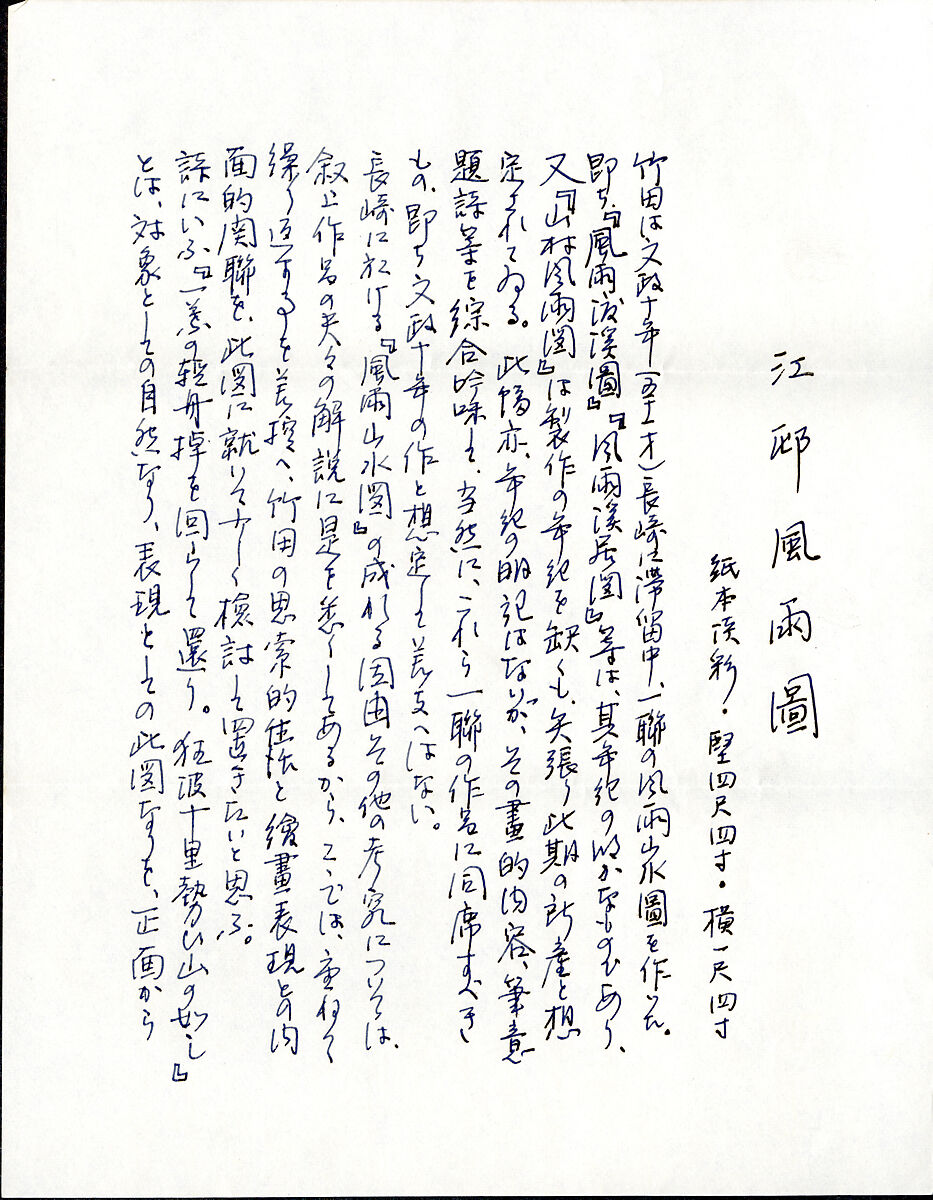 江邨風雨圖
紙本淡彩・竪四尺四寸・横一尺四寸
竹田は文政十年(五十一才)長崎に滞留中、一聯の風雨山水圖を作つた。
即ち、『風雨渡溪圖』『風雨溪居圖』等は、其年紀の明かなものであり、
又『山村風雨圖』は製作の年紀を缺くも、矢張り此期の所産と想
定されてゐる。此幅亦、年紀の明記はないが、その畫的内容、筆意
題詩等を綜合吟味して、当然に、これら一聯の作品に同席すべき
もの、即ち文政十年の作と想定して差支へはない。
長崎に於ける『風雨山水圖』の成れる因由その他の考究については、
叙上作品の夫々の解説に是を悉くしてあるから、こゝでは、重ねて
繰り返すことを差控へ、竹田の思索的生活と繪畫表現との内
面的関聯を、此図に就いて少しく検討して置きたいと思ふ。
詩にいふ『一葉の軽舟掉を回らして還る。狂波十里勢ひ山の如し』
とは、対象としての自然なり、表現としての此図なりを、正面から